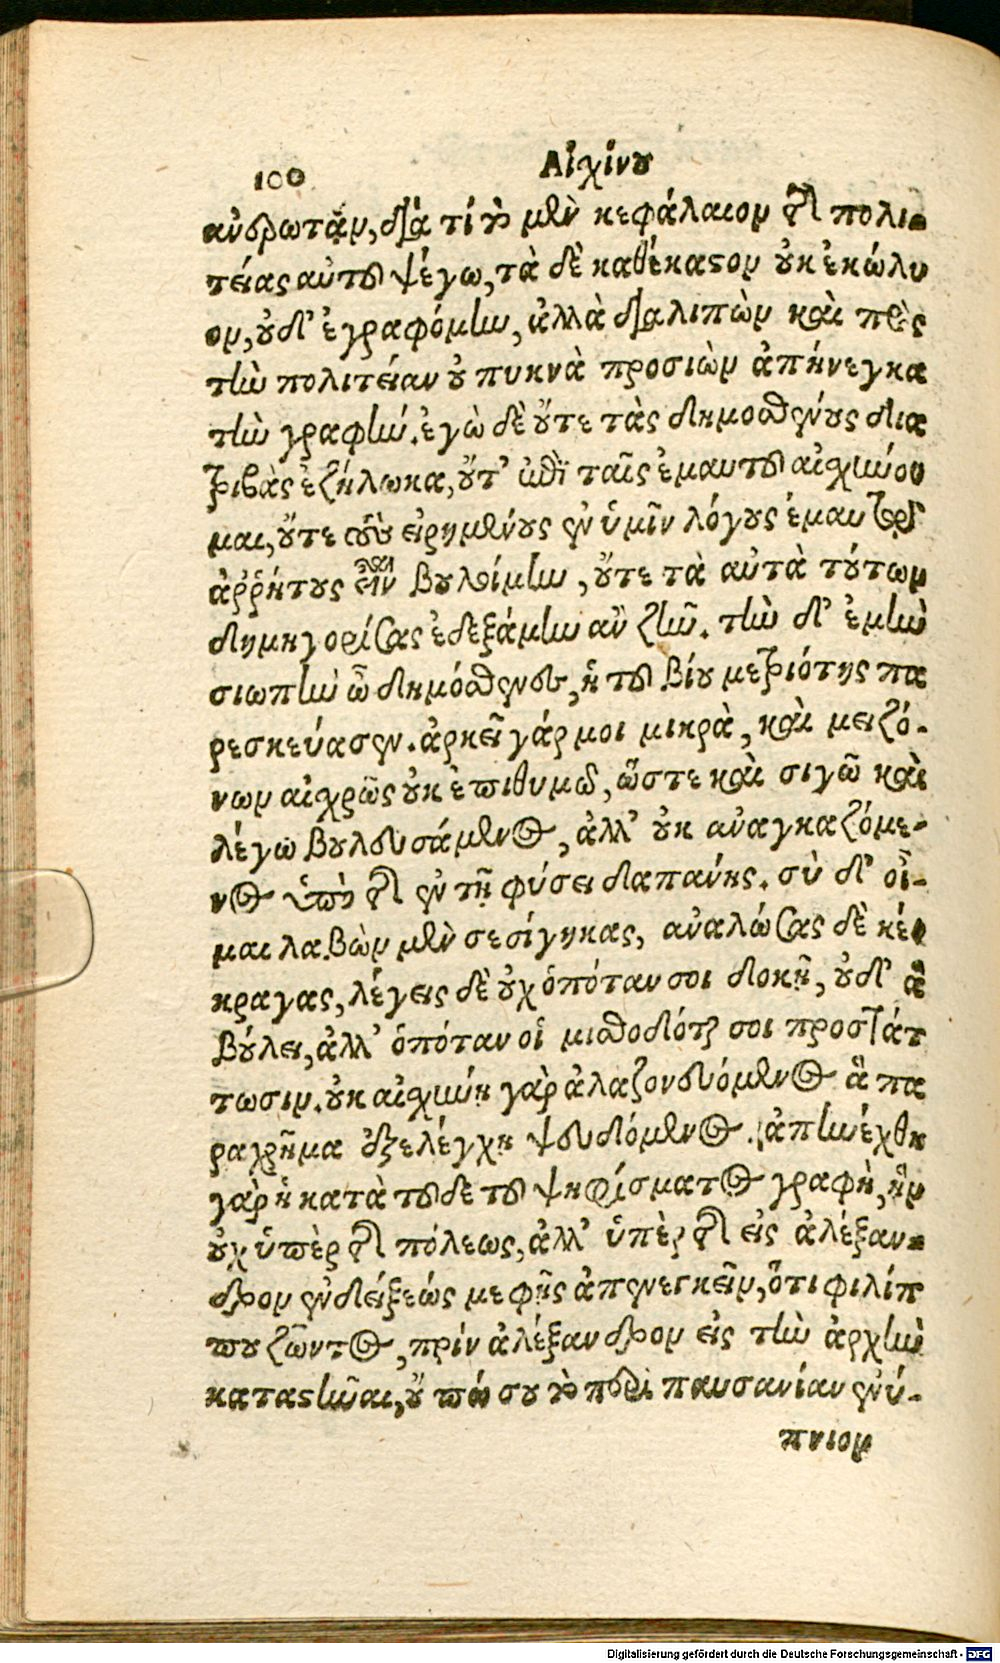 100 Αἰχίνου
ἀνερωτᾷν, διὰ τί τὸ μὲν κεφάλαιον τῆς πολι-
τείας αὐτοῦ ψέγω, τὰ δὲ καθέκαστον οὐκ ἐκώλυ
ον, οὐδ' ἐγραφόμην, ἀλλὰ διαλιπὼν καὶ πρὸς
τὴν πολιτείαν οὐ πυκνὰ προσιὼν ἀπήνεγκα
τὴν γραφήν. ἐγὼ δὲ οὔτε τὰς δημοσθένους δια
τριβὰς ἐζήλωκα, οὔτ' ἐπὶ ταῖς ἐμαυτοῦ αἰσχύνου
μαι, οὔτε τοὺς εἰρημένους ἐν ὑμῖν λόγους ἐμαυτῷ
ἀῤῥήτους εἶναι βουλοίμην, οὔτε τὰ αὐτὰ τούτων
δημηγορίσας ἐδεξάμην ἂν ζῆν. τὴν δ' ἐμὴν
σιωπὴν ὦ δημόσθενες, ἡ τοῦ βίου μετριότης πα
ρεσκεύασεν. ἀρκεῖ γάρ μοι μικρὰ, καὶ μειζό-
νων αἰχρῶς οὐκ ἐπιθυμῶ, ὥστε καὶ σιγῶ καὶ
λέγω βουλευσάμενος, ἀλλ' οὐκ ἀναγκαζόμε-
νος ὑπὸ τῆς ἐν τῇ φύσει δαπάνης. σὺ δ' οἶ-
μαι λαβὼν μὲν σεσίγηκας, ἀναλώσας δὲ κέ
κραγας, λέγεις δὲ οὐχ ὁπόταν σοι δοκῇ, οὐδ' ἃ
βούλει, ἀλλ' ὁπόταν οἱ μισθοδόται σοι προστάτ
τωσιν. οὐκ αἰσχύνῃ γὰρ ἀλαζονευόμενος ἃ πα
ραχρῆμα ἐξελέγχῃ ψευδόμενος. ἀπηνέχθη
γὰρ ἡ κατὰ τοῦδε τοῦ ψηφίσματος γραφὴ, ἣν
οὐχ ὑπὲρ τῆς πόλεως, ἀλλ' ὑπὲρ τῆς εἰς ἀλέξαν-
δρον ἐνδείξεώς με φῂς ἀπενεγκεῖν, ὅτι φιλίπ
που ζῶντος, πρὶν ἀλέξανδρον εἰς τὴν ἀρχὴν
καταστῆναι, οὔ πώ σου τὸ περὶ παυσανίαν ἐνύ-
πνιον
Digitalisierung gefördert durch die Deutsche Forschungsgemeinschaft - DFG